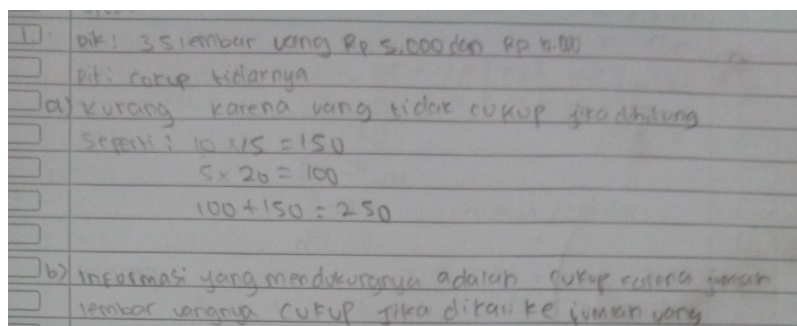 1. Dik: 35 lembar uang Rp 5.000 dan Rp 10.000
Dit: cukup tidaknya
a) kurang karena uang tidak cukup jika dihitung
seperti: 10 x 15 = 150
5 x 20 = 100
100 + 150 = 250
b) informasi yang mendukungnya adalah cukup karena jumlah
lembar uangnya cukup jika dikali ke jumlah uang